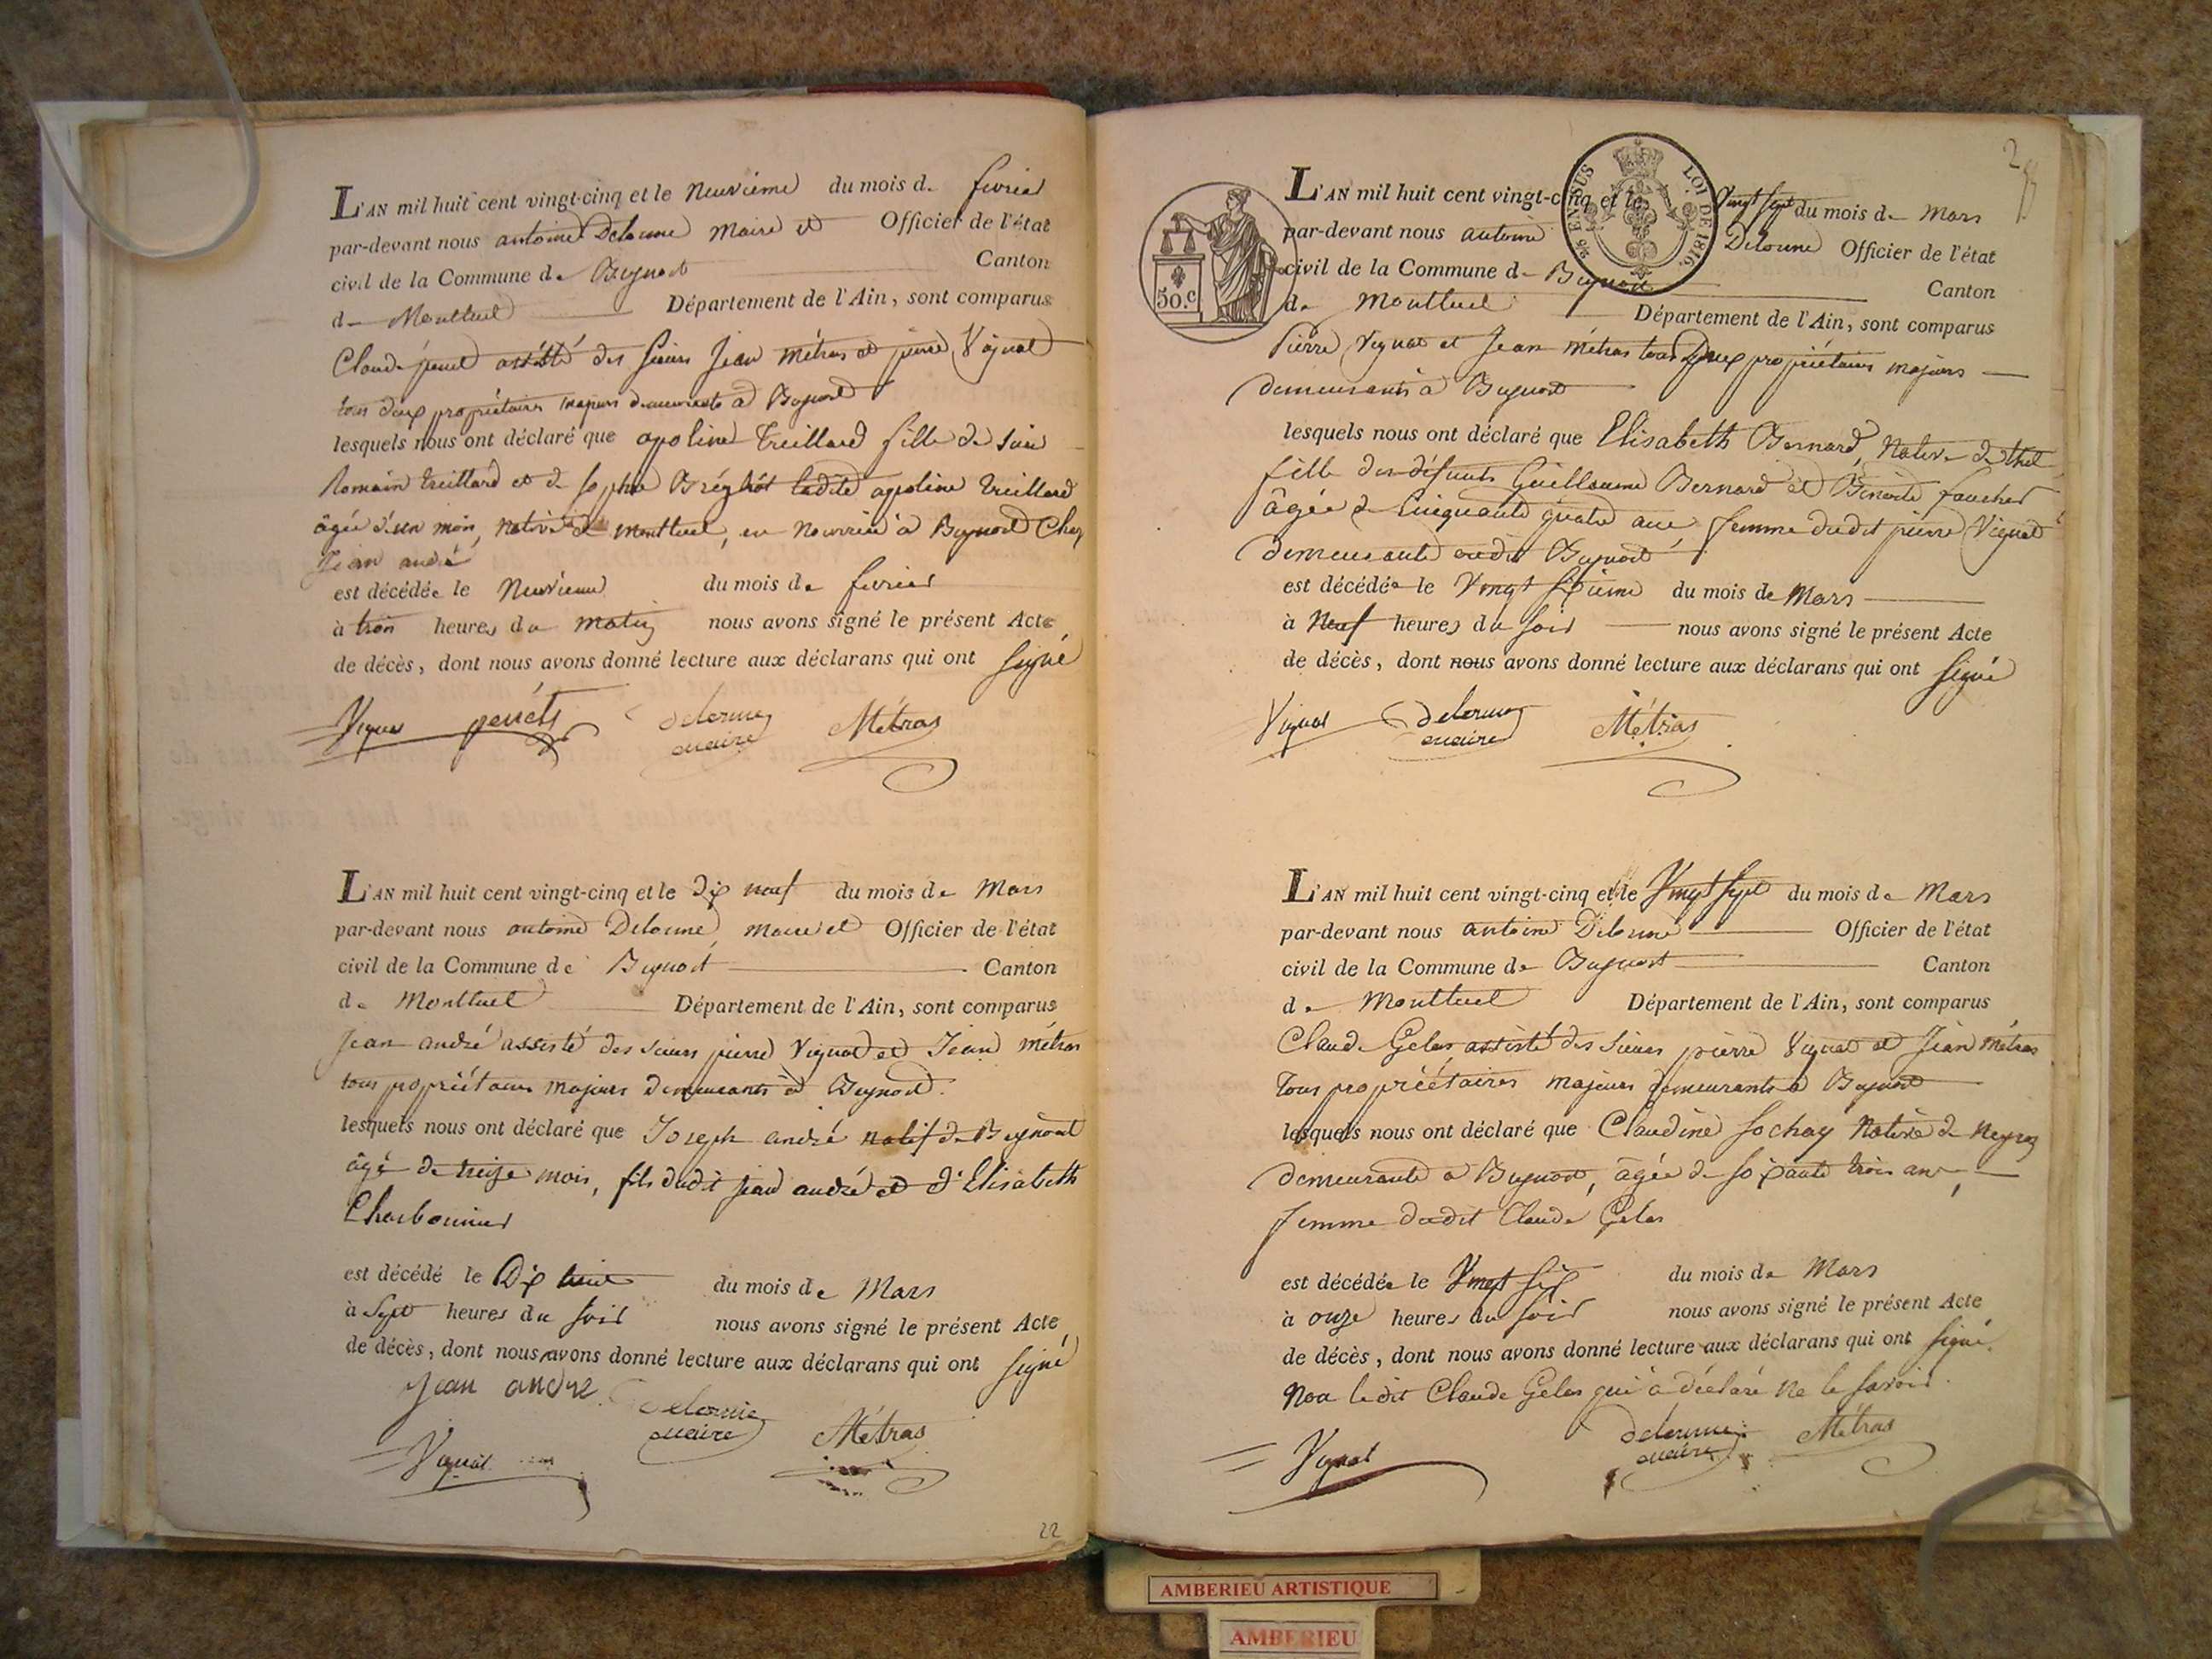 L'AN mil huit cent vingt-cinq et le neuvieme du mois de fevrier
par-devant nous antoine Delorme maire et Officier de l'état
civil de la Commune de Beynost Canton
de Montluel Département de l'Ain, sont comparus
Claude assisté des sieurs Jean métras et pierre Vignat
tous deux propriétaires majeurs demeurants a Beynost
lesquels nous ont déclaré que apoline Treillard fille de sieur
Romain treillard et de sophie Bréghôt ladite apoline treillard
âgée d'un mois, native de montluel, en nourrice à Beynost Chez
Jean andré
est décédée le neuvieme du mois de fevrier
à trois heures du matin nous avons signé le présent Acte
de décès, dont nous avons donné lecture aux déclarans qui ont signé
Vignat delorme Métras
maire
L'AN mil huit cent vingt-cinq et le dix neuf du mois de Mars
par-devant nous antoine Delorme maire et Officier de l'état
civil de la Commune de Beynost Canton
de Montluel Département de l'Ain, sont comparus
Jean andré assisté des sieurs pierre Vignat et Jean métras
tous propriétaires majeurs demeurants à Beynost.
lesquels nous ont déclaré que Joseph andré natif de Beynost
âgé de treize mois, fils dudit jean andré et d'Elisabeth
Charbonnier
est décédé le Dix huit du mois de Mars
à Sept heures du soir nous avons signé le présent Acte
de décès, dont nous avons donné lecture aux déclarans qui ont signé
Jean andre delorme
maire Métras
Vignat
22
L'AN mil huit cent vingt-cinq et le Vingt sept du mois de Mars
par-devant nous antoine Delorme Officier de l'état
civil de la Commune de Beynost Canton
de Montluel Département de l'Ain, sont comparus
Pierre Vignat et Jean métras tous Deux propriétaires majeurs
demeurants à Beynost
lesquels nous ont déclaré que Elisabeth Bernard, native de thil
fille des défunts Guillaume Bernard et Benoite faucher
âgée de Cinquante quatre ans, femme dudit pierre Vignat
demeurante audit Beynost
est décédée le Vingt sixieme du mois de Mars
à Neuf heures du soir nous avons signé le présent Acte
de décès, dont nous avons donné lecture aux déclarans qui ont signé
Vignat delorme Métras
maire
50.c
LOI DE 1816.
L'AN mil huit cent vingt-cinq et le Vingt sept du mois de Mars
par-devant nous antoine Delorme Officier de l'état
civil de la Commune de Beynost Canton
de Montluel Département de l'Ain, sont comparus
Claude Gelas assisté des sieurs pierre Vignat et Jean Métras
Tous propriétaires majeurs demeurants a Beynost
lesquels nous ont déclaré que Claudine Sochay Native de Neyron
demeurante a Beynost, âgée de soixante trois ans,
femme dudit Claude Gelas
est décédée le Vingt six du mois de Mars
à onze heures du soir nous avons signé le présent Acte
de décès, dont nous avons donné lecture aux déclarans qui ont signé.
Non ledit Claude Gelas qui a déclaré ne le savoir.
Vignat delorme Métras
maire
AMBERIEU ARTISTIQUE
AMBERIEU